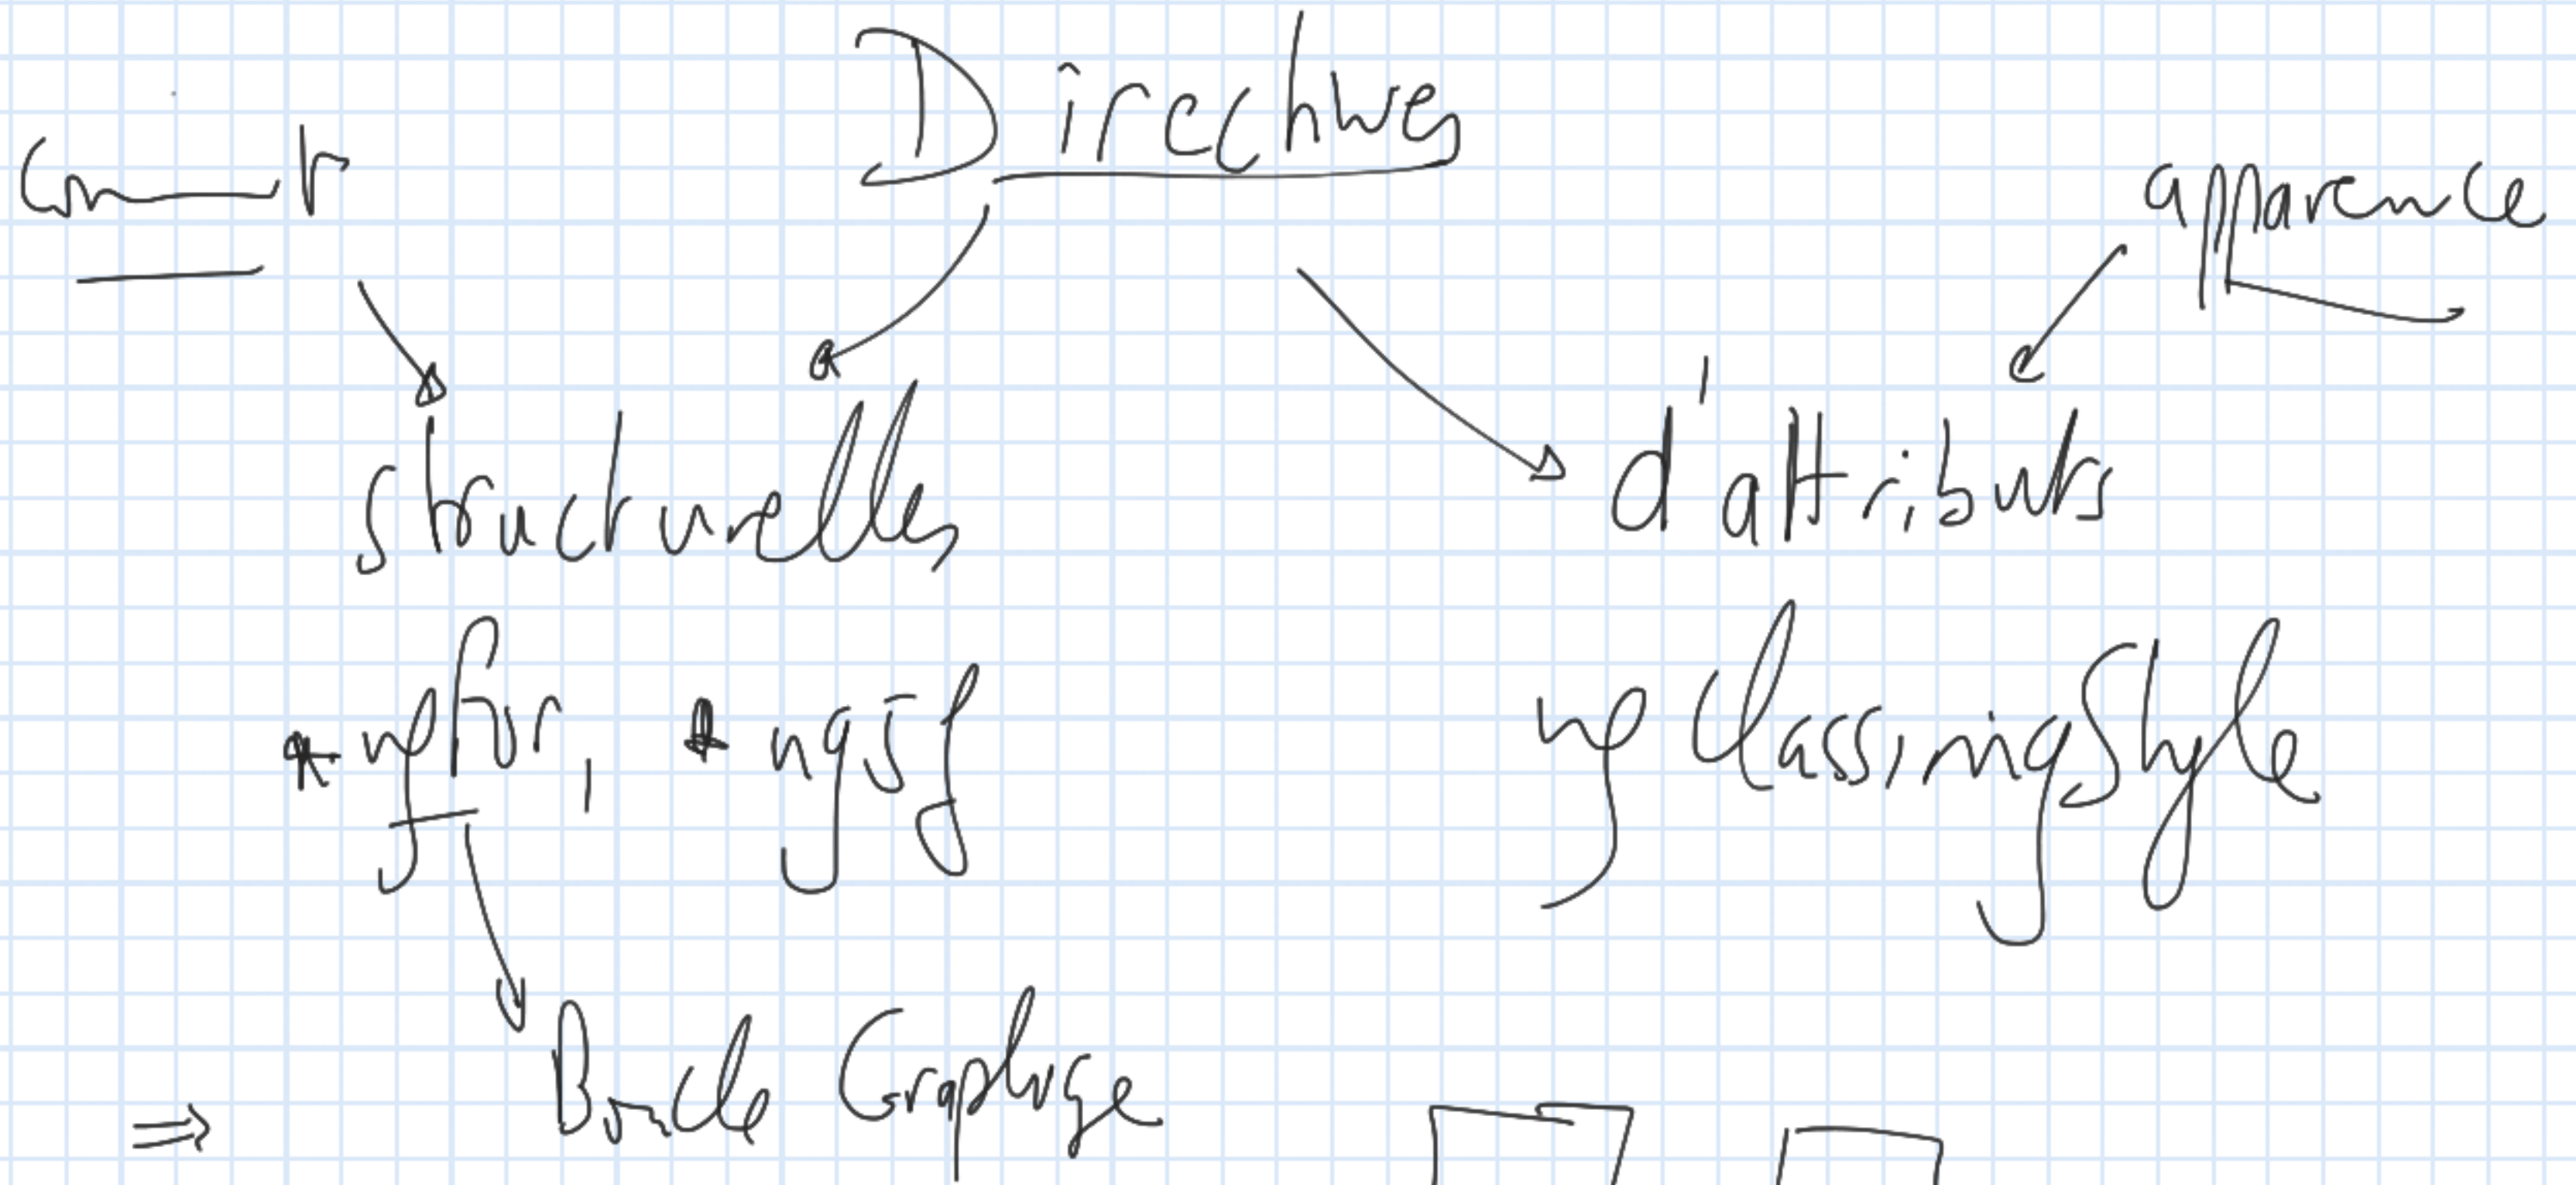 Directives
apparence
structurelles d'attributs
*ngfor, *ngif ngClass, ngStyle
Boucle Graphique
⇒